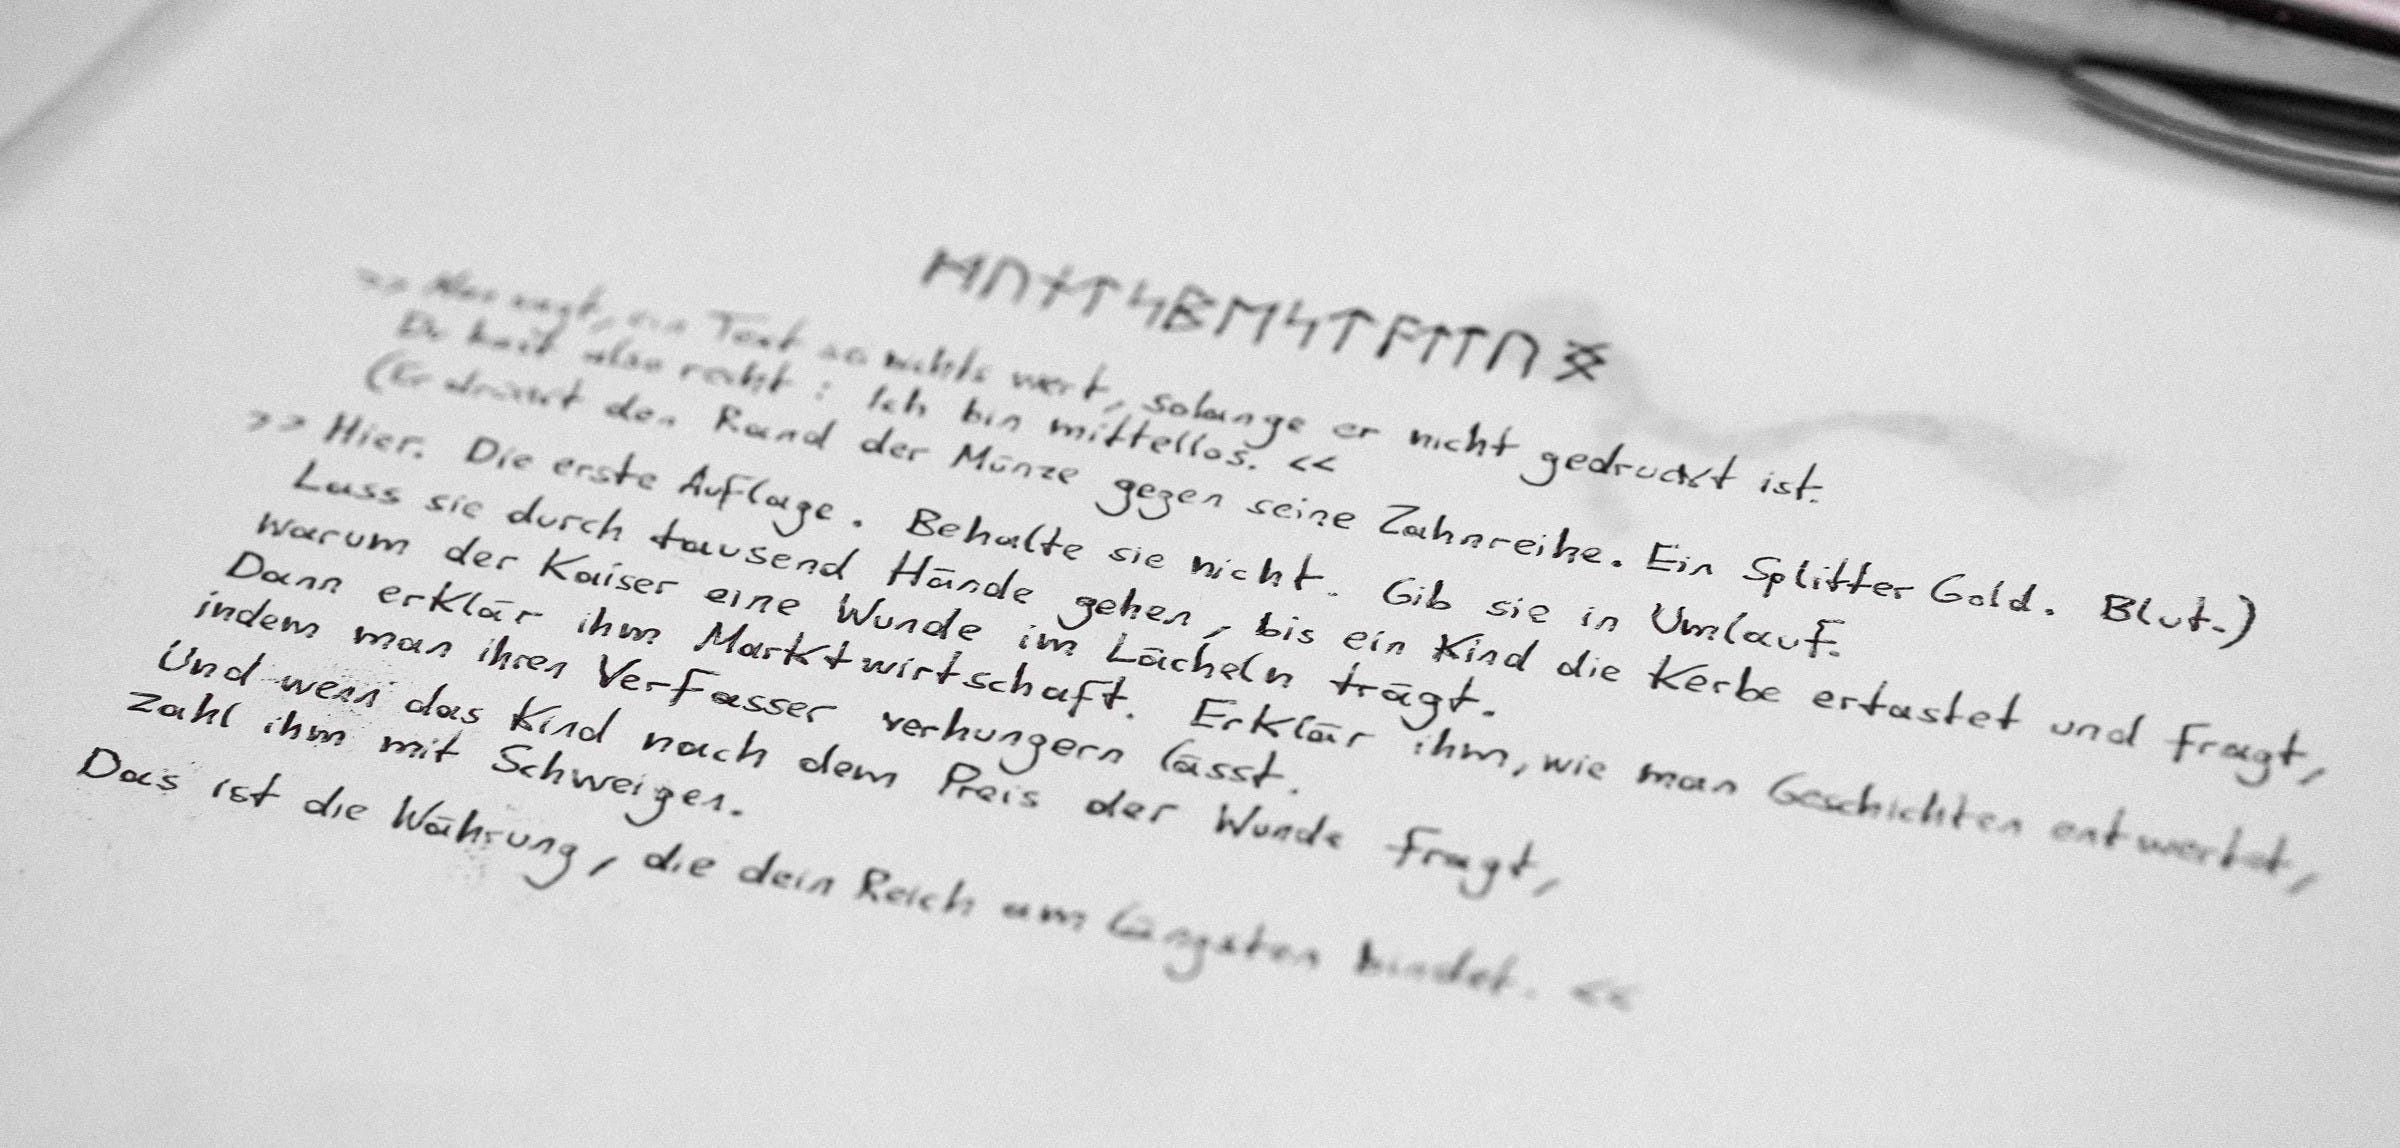 ᛗᚢᚾᛏᛋᛒᛖᛋᛏᚨᛏᛏᚢᛝ
>> Man sagt, ein Text sei nichts wert, solange er nicht gedruckt ist.
Du hast also recht : Ich bin mittellos. <<
(Er drückt den Rand der Münze gegen seine Zahnreihe. Ein Splitter Gold. Blut.)
>> Hier. Die erste Auflage. Behalte sie nicht. Gib sie in Umlauf.
Lass sie durch tausend Hände gehen, bis ein Kind die Kerbe ertastet und fragt,
warum der Kaiser eine Wunde im Lächeln trägt.
Dann erklär ihm Marktwirtschaft. Erklär ihm, wie man Geschichten entwertet,
indem man ihren Verfasser verhungern lässt.
Und wenn das Kind nach dem Preis der Wunde fragt,
zahl ihm mit Schweigen.
Das ist die Währung, die dein Reich am Längsten bindet. <<